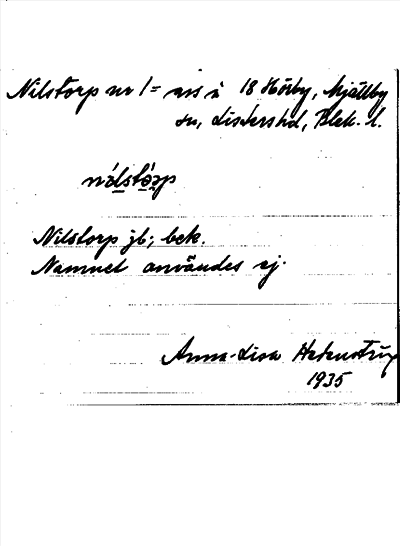 Nilstorp nr 1 = avs å 18 Hörby, Mjällby
sn, Listershd, Blek. l.
nílstɔrp
Nilstorp jb; bek.
Namnet användes ej.
Anna-Lisa
1935